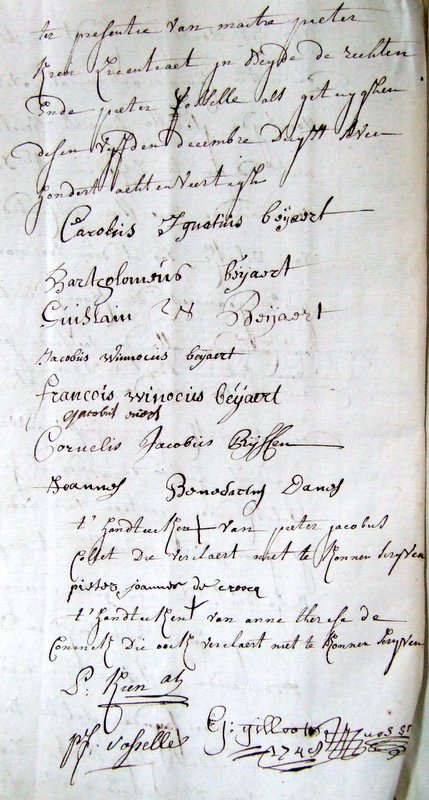 ter presentie van maitre pieter
Krien licentiaet in Beyde de rechten
Ende pieter vosselle als getuyghen
desen vyfden decembre duyst seven
hondert achten veertigh
Carolus Ignatius beÿaert
Bartholomeús beÿaert
Guislain Beÿaert
Jacobús winnocius beÿaert
françois winocius béÿaert
Jacobus
Cornelis Jacobus
Joannes Benedictus Danes
t'handteecken + van pieter jacobus
Collet die verclaert niet te konnen schryven
pieter joannes de croocq
t'handteecken + van anne therese de
Coninck die oock verclaert niet te konnen schryven
P: Krien
P: vosselle G: gilloots
1748